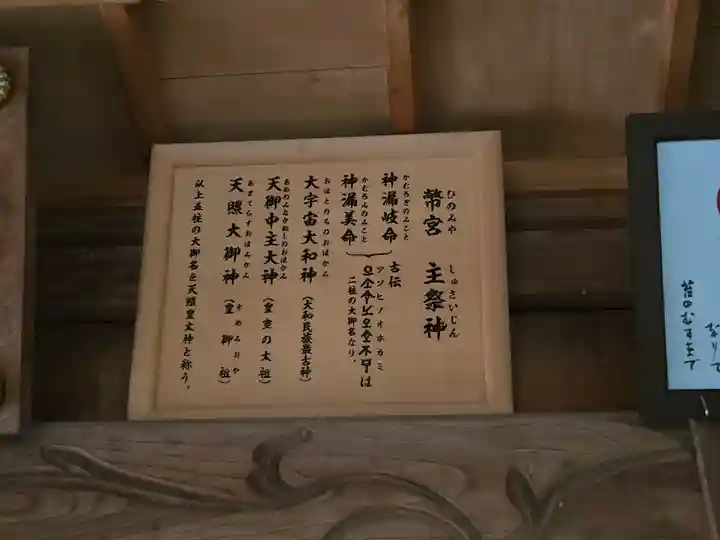 幣宮 主祭神
ひのみや しゅさいじん
神漏岐命
かむろぎのみこと
神漏美命
かむろみのみこと
古伝
アソヒノオホカミ
は
二柱の大御名なり。
大宇宙大和神
おほとのちのおほかみ
(大和民族最古神)
天御中主大神
あめのみなかぬしのおほかみ
(皇室の太祖)
天照大御神
あまてらすおほみかみ
(皇御祖)
すめみおや
以上五柱の大御名を天照皇太神と称う。
なりて
苔のむすまで